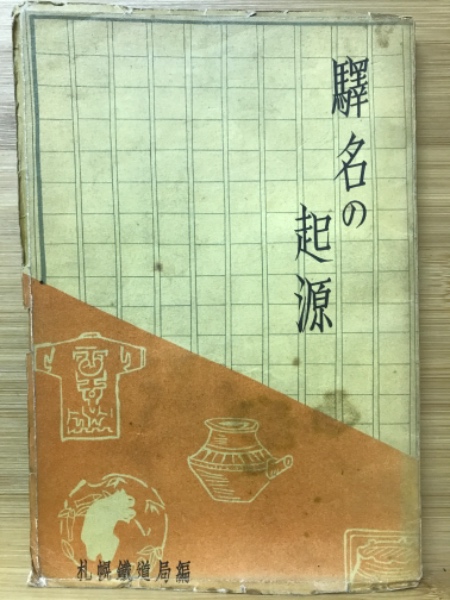 驛名の
起源
札幌鐵道局編